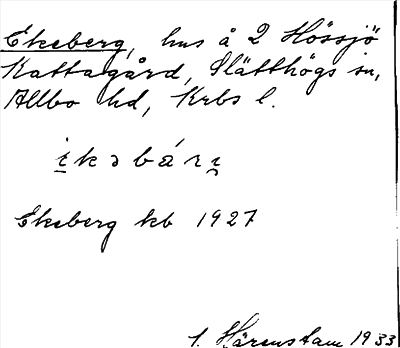 Ekeberg, hus å 2 Hössjö
Kattagård, Slätthögs sn,
Allbo hd, Krbs l.
i̠kəbárɩ̠
Ekeberg kb 1927
1. Härenstam 1933